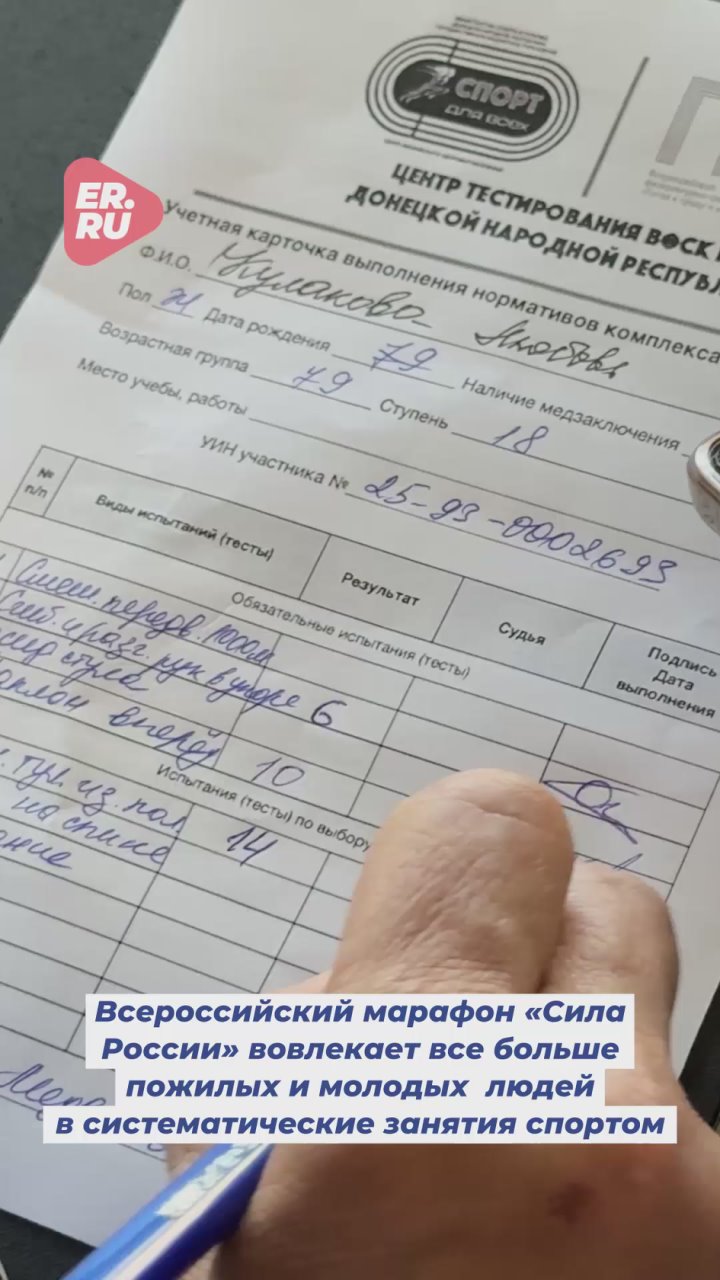 СПОРТ
ДЛЯ ВСЕХ
ER.
RU
ЦЕНТР ТЕСТИРОВАНИЯ ВФСК
ДОНЕЦКОЙ НАРОДНОЙ РЕСПУБЛ
Учетная карточка выполнения нормативов комплекса
Ф.И.О. Кулакова
Пол ж Дата рождения 79 Наличие медзаключения
Возрастная группа 79 Ступень 18
Место учебы, работы
УИН участника № 25-93-0002693
№ п/п Виды испытаний (тесты) Результат Судья Подпись Дата выполнения
Обязательные испытания (тесты)
Смеш. передв. 1000м
Сгиб. и разг. рук в упоре 6
сид стула
наклон вперёд 10
Испытания (тесты) по выбору
тул. из. пол. 14
на спине
Всероссийский марафон «Сила
России» вовлекает все больше
пожилых и молодых людей
в систематические занятия спортом